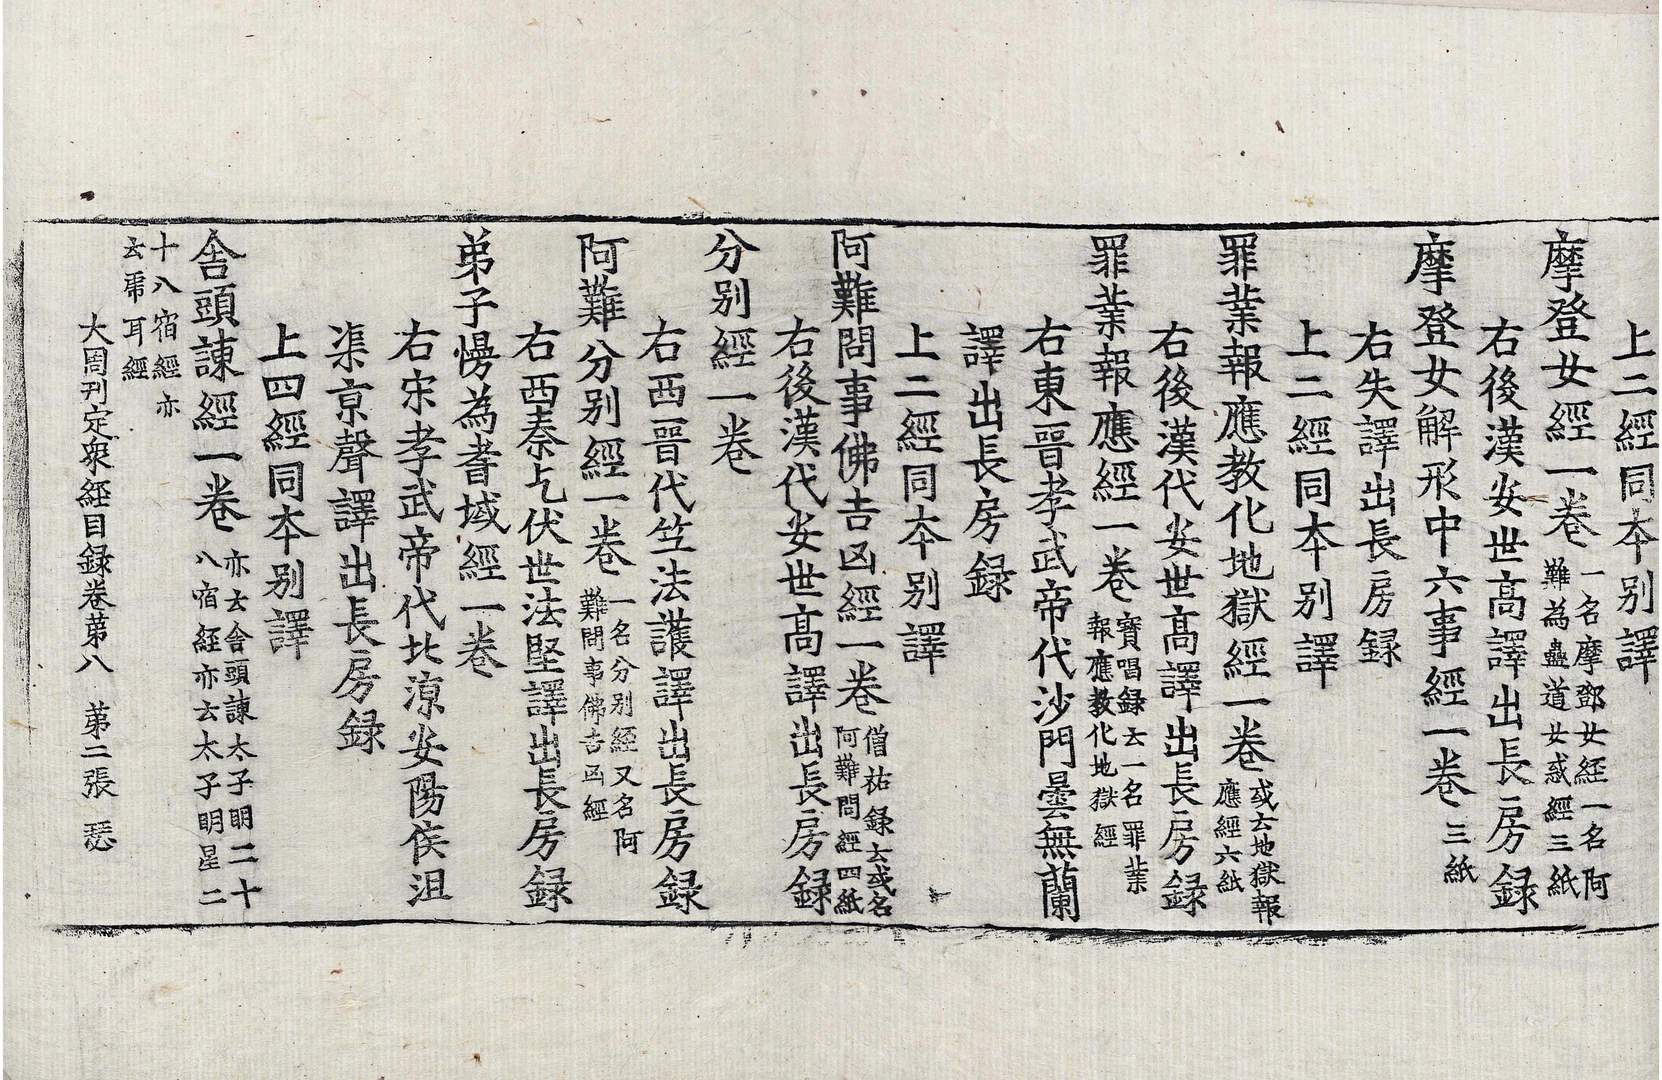 上二經同本别譯
摩登女經一卷 一名摩鄧女經一名阿
難為蠱道女惑經三紙
右後漢安世高譯出長房録
摩登女解形中六事經一卷 三紙
右失譯出長房録
上二經同本别譯
罪業報應教化地獄經一卷 或云地獄報
應經六紙
右後漢代安世高譯出長房録
罪業報應經一卷 寶唱録云一名罪業
報應教化地獄經
右東晉孝武帝代沙門曇無蘭
譯出長房録
上二經同本别譯
阿難問事佛吉凶經一卷 僧祐録云或名
阿難問經四紙
右後漢代安世高譯出長房録
分别經一卷
右西晉代竺法護譯出長房録
阿難分别經一卷 一名分别經又名阿
難問事佛吉凶經
右西秦乞伏世法堅譯出長房録
弟子慢為耆域經一卷
右宋孝武帝代北涼安陽侯沮
渠京聲譯出長房録
上四經同本别譯
舍頭諫經一卷 亦云舍頭諫太子明二十
八宿經亦云太子明星二
十八宿經亦
云虎耳經
大周刊定衆経目録卷第八 第二張 瑟